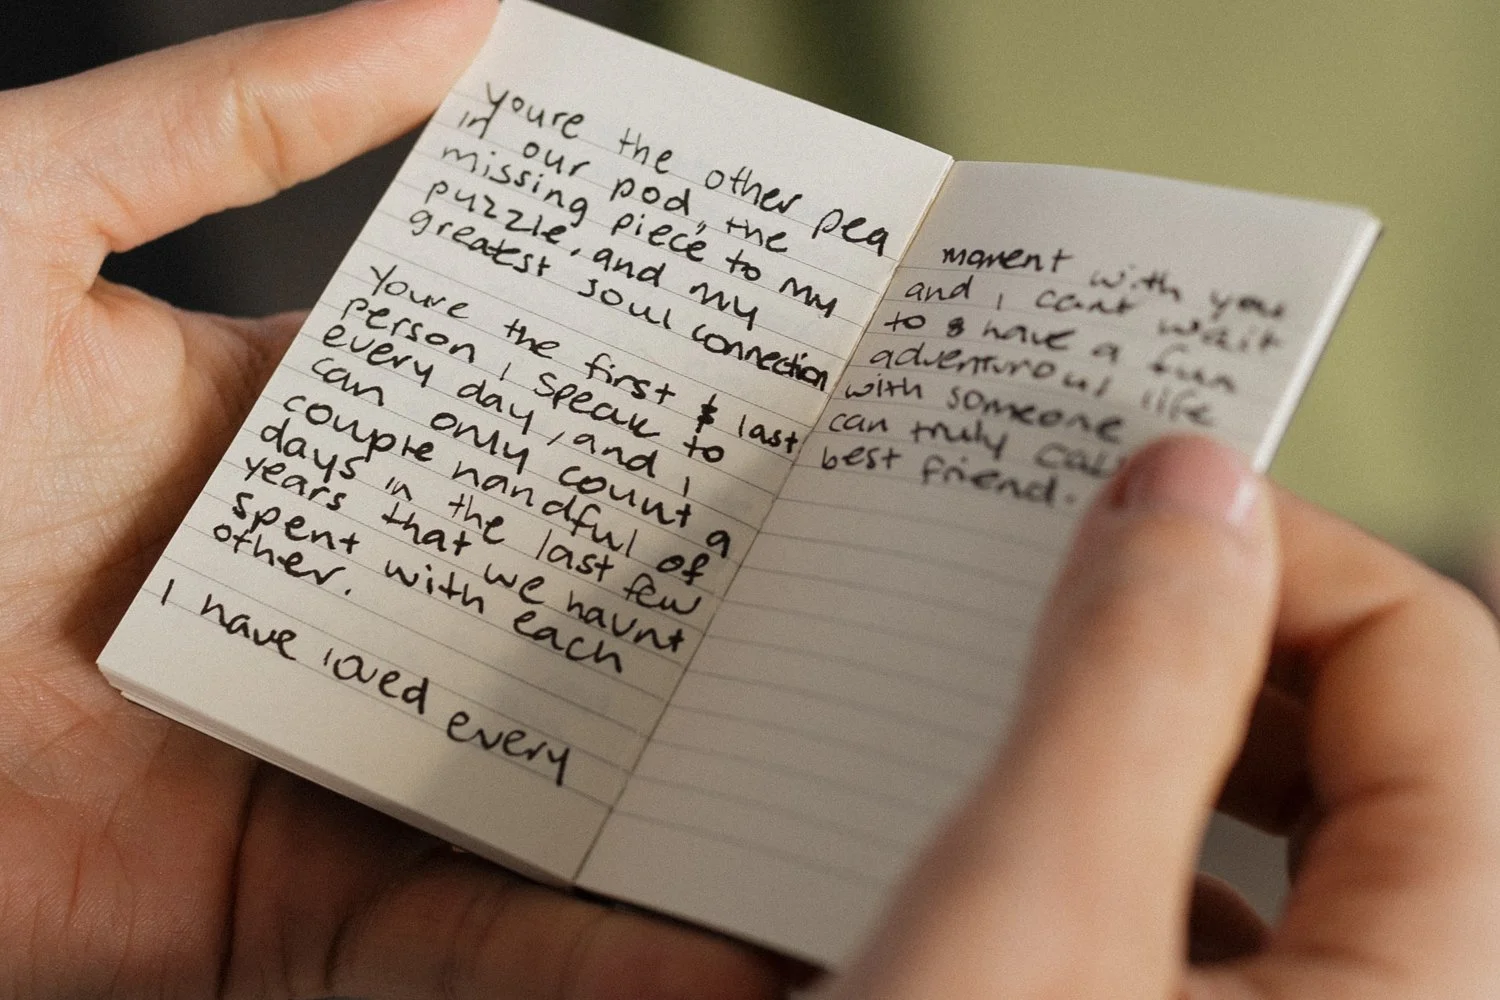 youre the other pea
in our pod, the
missing piece to my
puzzle, and my
greatest soul connection
Youre the first & last
person I speak to
every day, and I
can only count a
couple handful of
days in the last few
years that we havnt
spent with each
other.
I have loved every
moment with you
and I cant wait
to & have a fun
adventurous life
with someone
can truly call
best friend.